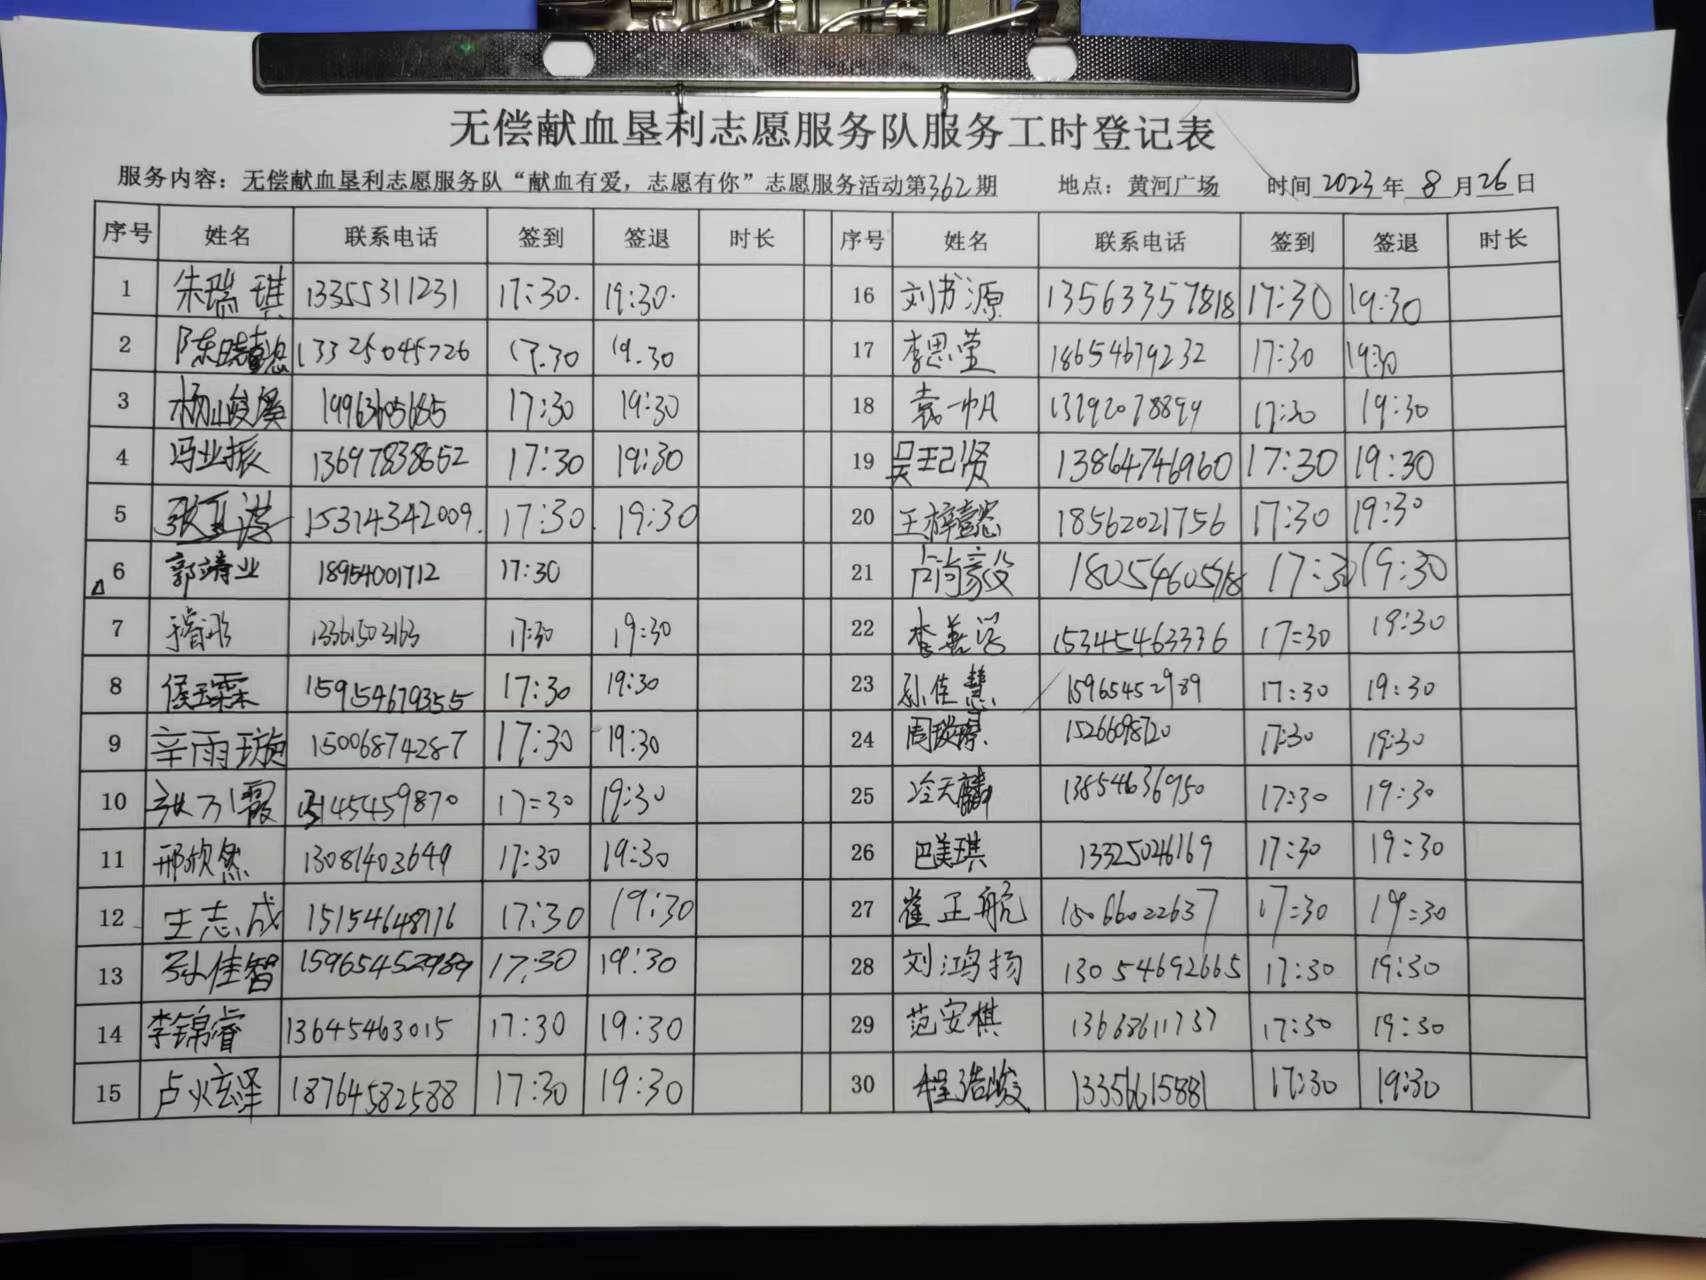 无偿献血垦利志愿服务队服务工时登记表
服务内容：无偿献血垦利志愿服务队“献血有爱，志愿有你”志愿服务活动第362期 地点：黄河广场 时间 2023 年 8 月 26 日
序号 姓名 联系电话 签到 签退 时长 序号 姓名 联系电话 签到 签退 时长
1 朱瑞琪 13355311231 17:30. 19:30. 16 刘书源 13563357818 17:30 19:30
2 13325045726 17.30 19.30 17 李思莹 18654679232 17:30 19:30
3 杨峻溪 17:30 19:30 18 袁一帆 17:30 19:30
4 冯业振 13697838652 17:30 19:30 19 13864746960 17:30 19:30
5 15314342009. 17:30. 19:30 20 王梓懿 18562021756 17:30 19:30
6 郭靖业 18954001712 17:30 21 18054605918 17:30 19:30
7 13361503163 17:30 19:30 22 15345463336 17=30 19:30
8 15954679355 17:30 19:30 23 孙佳慧 15965452989 17:30 19:30
9 辛雨璇 15006874287 17:30 19:30 24 17:30 19:30
10 17=30 19:30 25 冷天麟 13854636950 17:30 19:30
11 邢欣然 13081403649 17:30 19:30 26 巴美琪 13325046169 17:30 19:30
12 王志成 15154648116 17:30 19:30 27 崔正航 15066022637 17=30 19=30
13 孙佳智 15965452989 17:30 19:30 28 刘鸿扬 13054692665 17:30 19:30
14 李锦睿 13645463015 17:30 19:30 29 范安棋 13668611737 17:30 19:30
15 卢炫泽 18764582588 17:30 19:30 30 程浩峻 13356615881 17:30 19:30